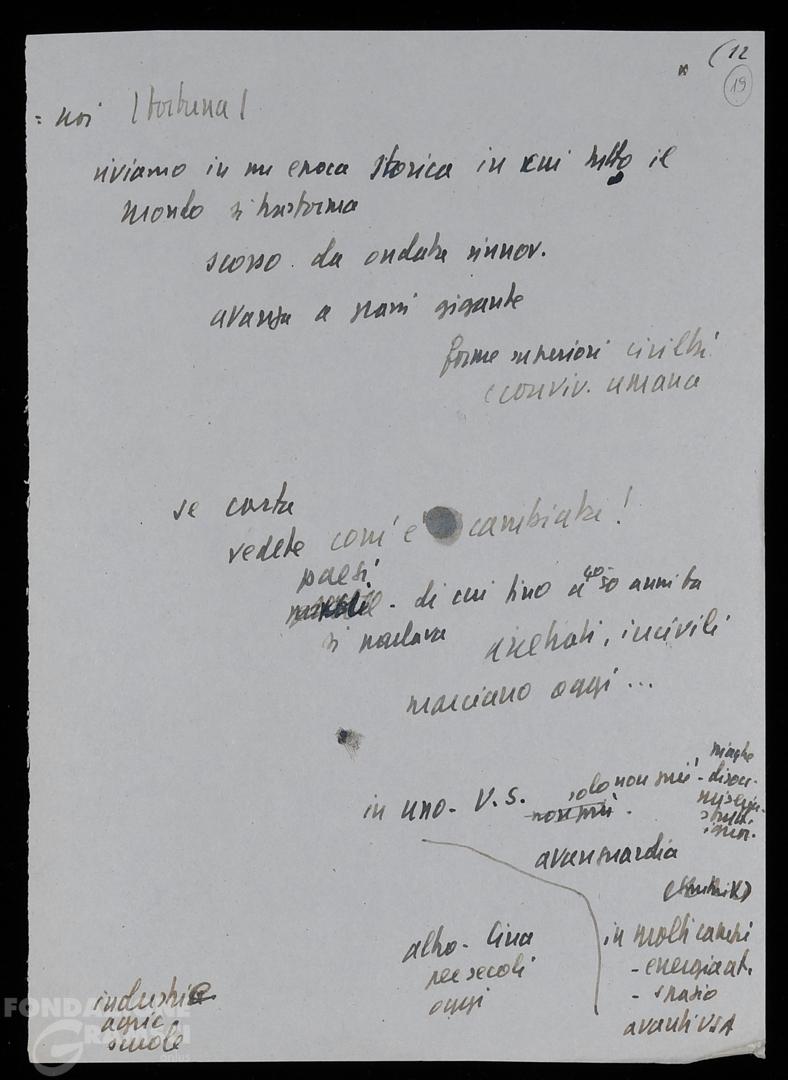 (12
19
= noi (fortuna)
viviamo in un epoca storica in cui tutto il
mondo si trasforma
scosso da ondata rinnov.
avanza a passi gigante
forme superiori civiltà
e conviv. umana
se carta
vedete com'è cambiata!
paesi
- di cui fino a 40-50 anni fa
si parlava arretrati, incivili
marciano oggi...
in uno - U.S. solo non più - disoc.
non più miseria
sfrutt.
ignor.
avanguardia
(sputnik)
altro - Cina
per secoli
oggi
in molti campi
- energia at.
- spazio
avanti USA
industrie
agric
scuole
FONDAZIONE
GRAMSCI